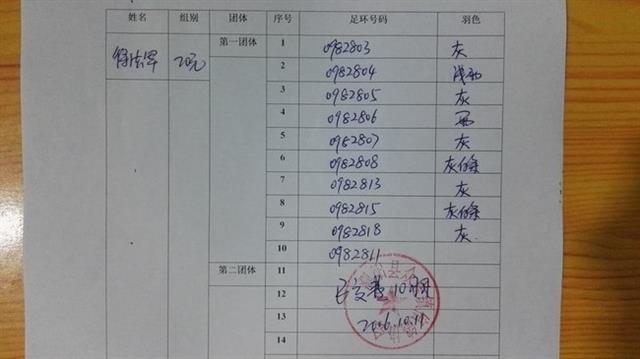 姓名 组别 团体 序号 足环号码 羽色
徐法军 20元 第一团体 1 0982803 灰
2 0982804
3 0982805 灰
4 0982806
5 0982807 灰
6 0982808 灰白条
7 0982813 灰
8 0982815 灰白条
9 0982818 灰
10 0982811
第二团体 11
12 10羽
13 2016.10.11
14